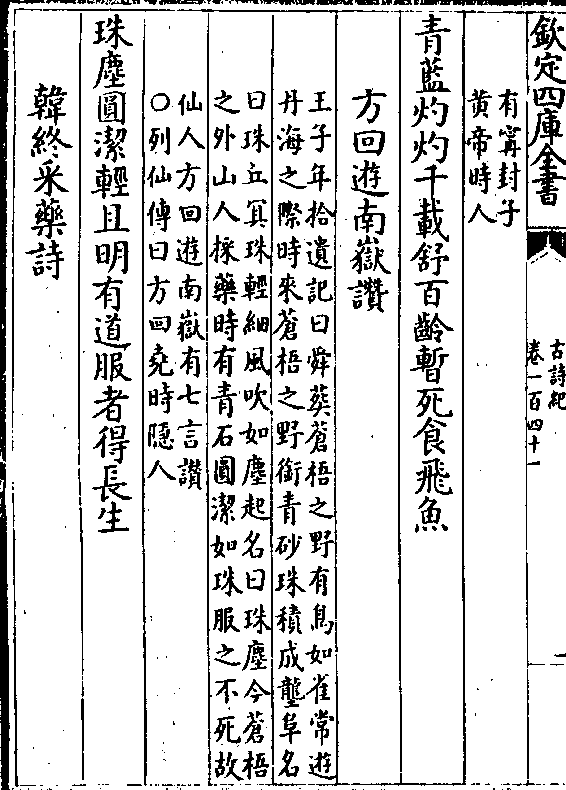 欽定四庫全書
古詩紀
卷一百四十一
有甯封子
黄帝時人
青藍灼灼千載舒百齡暫死食飛魚
方回遊南嶽讚
王子年拾遺記曰舜葬蒼梧之野有鳥如雀常遊
丹海之際時來蒼梧之野銜青砂珠積成壟阜名
曰珠丘其珠輕細風吹如塵起名曰珠塵今蒼梧
之外山人採藥時有青石圓潔如珠服之不死故
仙人方回遊南嶽有七言讚
○列仙傳曰方回堯時隱人
珠塵圓潔輕且明有道服者得長生
韓終采藥詩